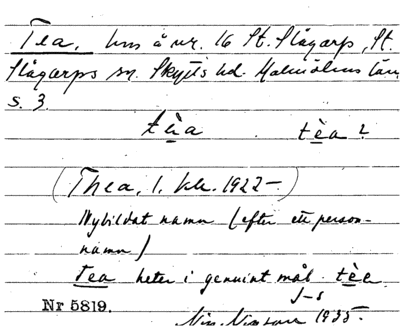 Tea, hus å nr. 16 St. Slågarp, St.
Slågarps sn. Skytts hd. Malmöhus län,
s. 3.
tèa tèa?
(Thea, 1. kl. 1922-)
Nybildat namn (efter ett person-
namn)
Tea heter i genuint mål tèa
J-s
Nr 5819. 1935.